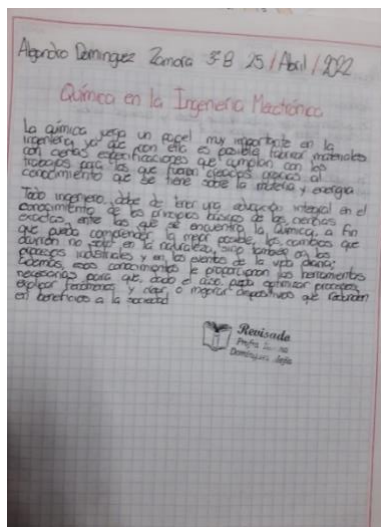 Alejandro Dominguez Zamora 3°B 25/Abril/2022
Química en la Ingeniería Mectrónica
La química juega un papel muy importante en la
ingeniería ya que con ella es posible fabricar materiales
con ciertas especificaciones que cumplan con los
trabajos para los que fueron creados gracias al
conocimiento que se tiene sobre la materia y energia
Todo ingeniero, debe de tener una educación integral en el
conocimiento de los principios básicos de las ciencias
exactas, entre las que se encuentra la Química, a fin
que pueda comprender, lo mejor posible, los cambios que
ocurren no solo en la naturaleza, sino también en los
procesos industriales y en los eventos de la vida diaria;
además, esos conocimientos le proporcionan las herramientas
necesarias para que, dado el caso, pueda optimizar procesos,
explicar fenómenos y crear o mejorar dispositivos que redunden
en beneficios a la sociedad
Revisado
Profra
Dominguez